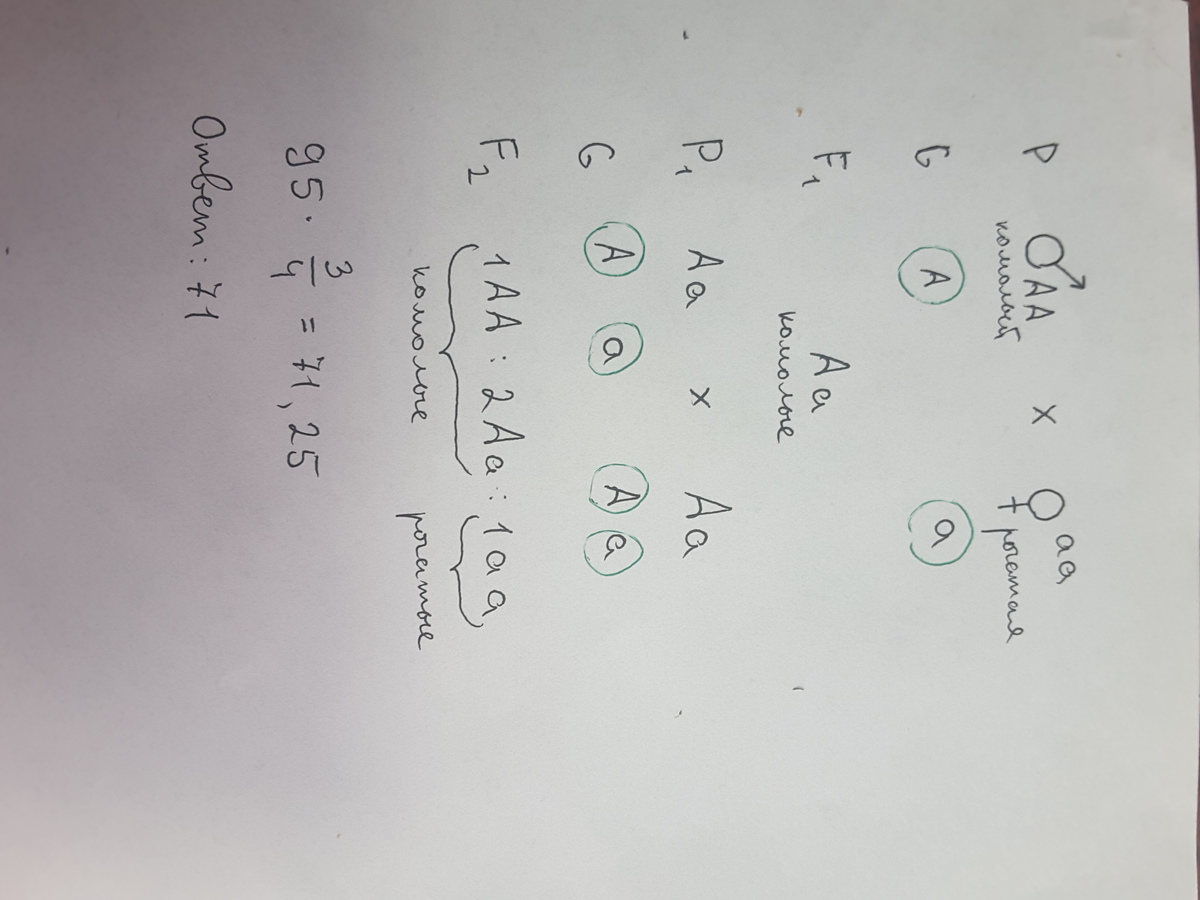 P ♂AA × ♀aa
комолый рогатая
G A a
F1 Aa
комолые
P1 Aa × Aa
G A a A a
F2 1AA : 2Aa : 1aa
комолые рогатые
95 · 3/4 = 71,25
Ответ: 71